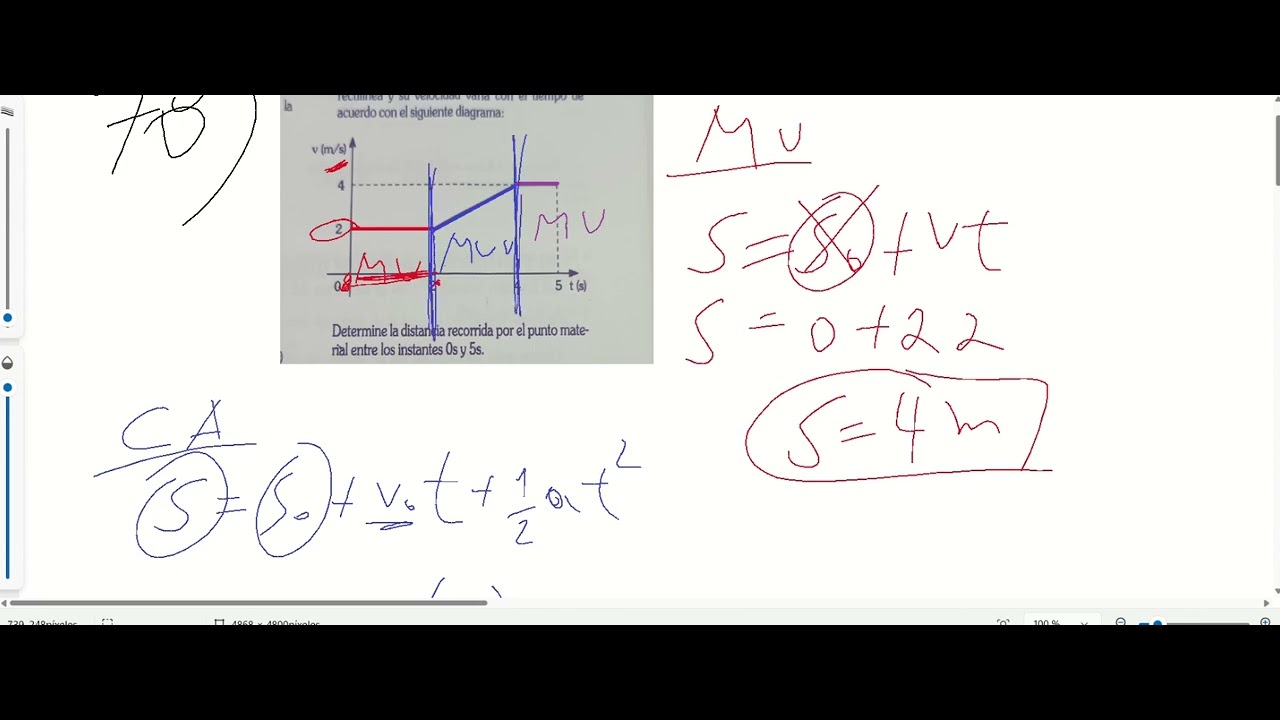 78)
la
rectilínea y su velocidad varía con el tiempo de
acuerdo con el siguiente diagrama:
v (m/s)
4
2
MU
MUV
MU
0
2
4
5 t (s)
Determine la distancia recorrida por el punto mate-
rial entre los instantes 0s y 5s.
MU
S = S₀ + vt
S = 0 + 2 2
S = 4 m
CA
S = S₀ + v₀ t + 1/2 a t²
4868 × 4800píxeles
100 %